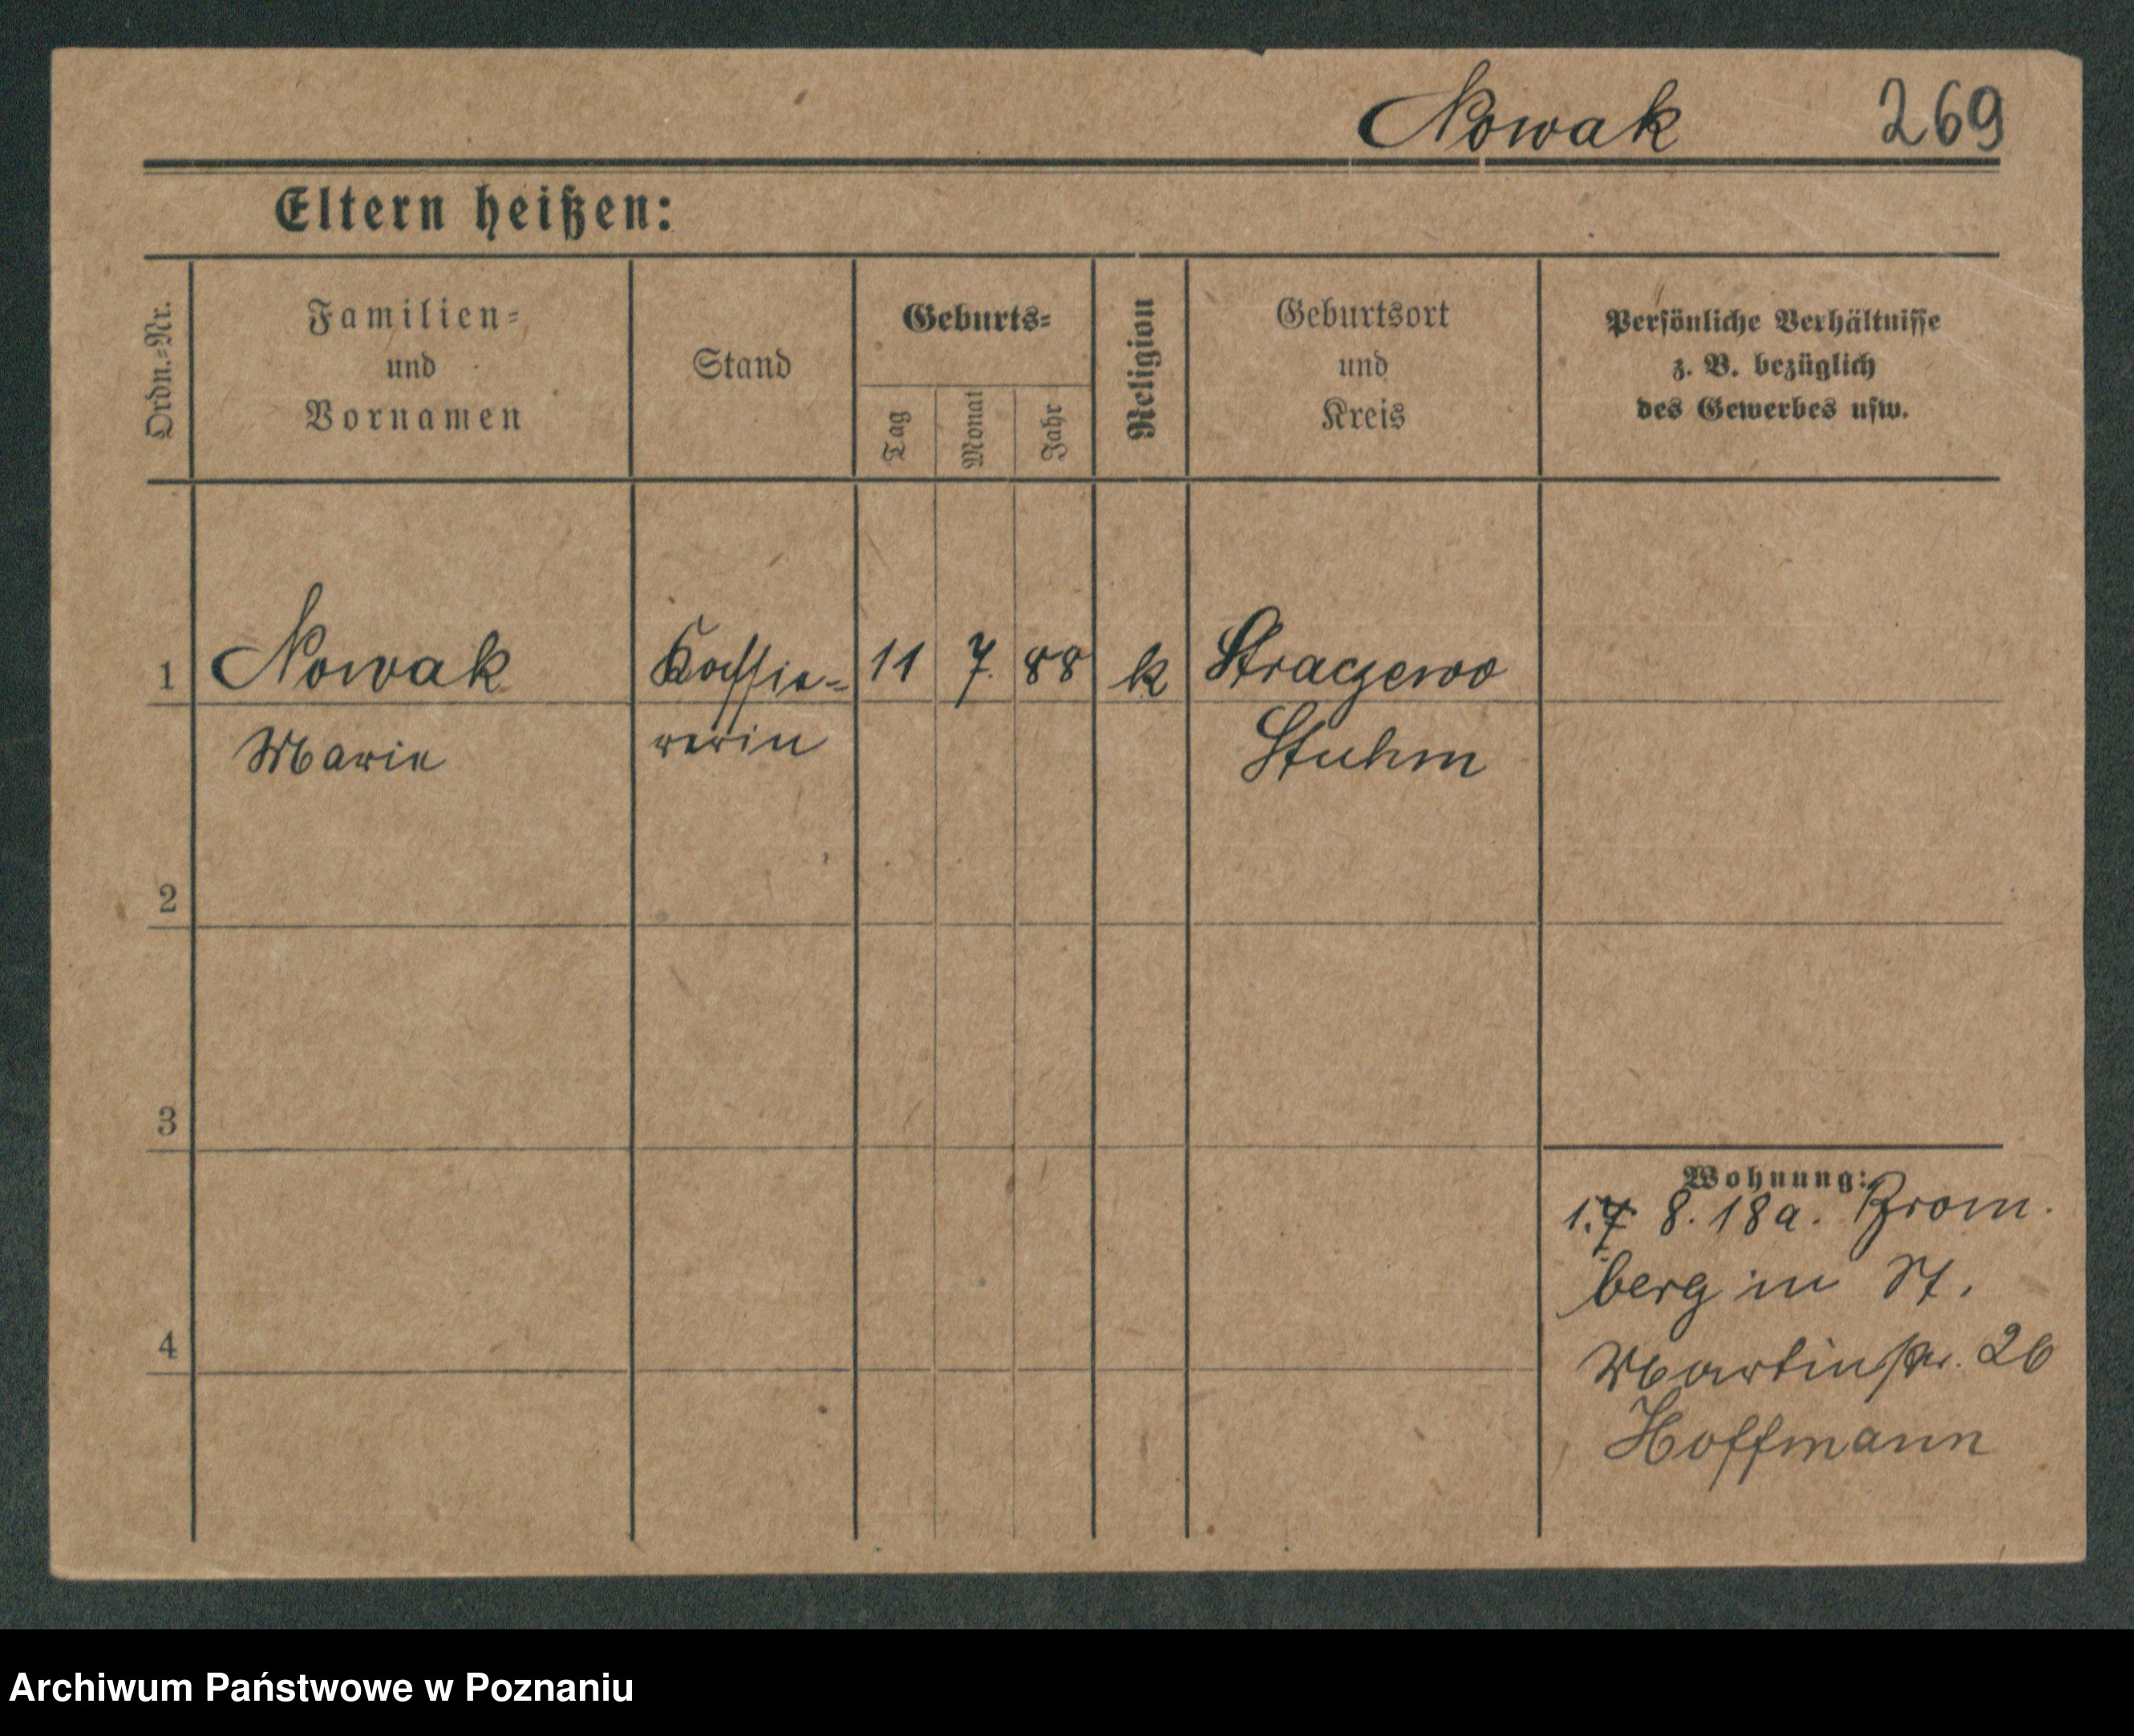 Nowak 269
Eltern heißen:
Ordn.-Nr.
Familien-
und
Vornamen
Stand
Geburts-
Tag
Monat
Jahr
Religion
Geburtsort
und
Kreis
Persönliche Verhältnisse
z. B. bezüglich
des Gewerbes usw.
1 Nowak Kassie- 11 7. 88 k Straczewo
Marie rerin Stuhm
2
3
4
Wohnung:
8. 18 a. Brom.
berg in St.
Martinstr. 26
Hoffmann
Archiwum Państwowe w Poznaniu